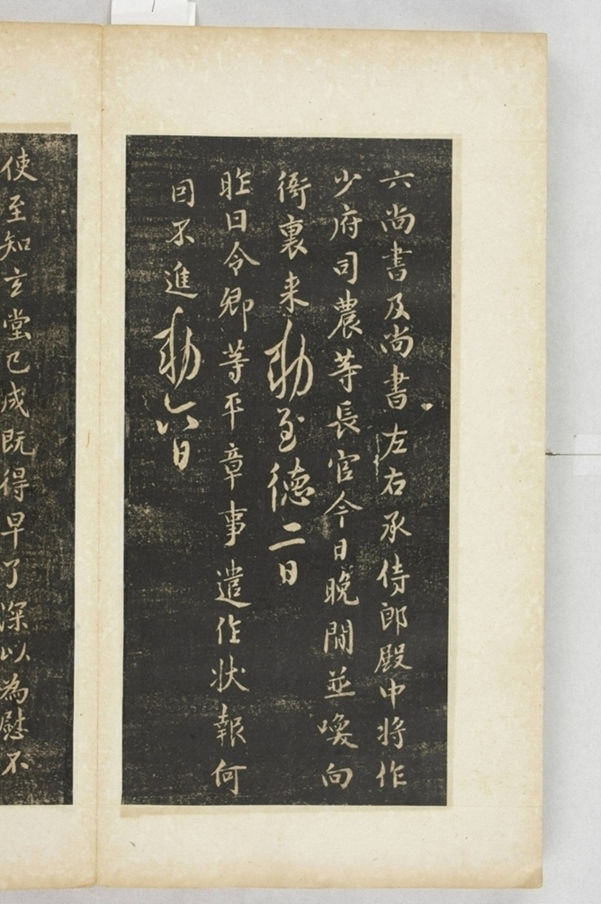 六尚書及尚書左右承侍郎殿中将作
少府司農等長官今日晚間並喚向
衙裏来勅至徳二日
昨日令卿等平章事遣作状報何
因不進勅六日
使至知玄堂已成既得早了深以為慰不